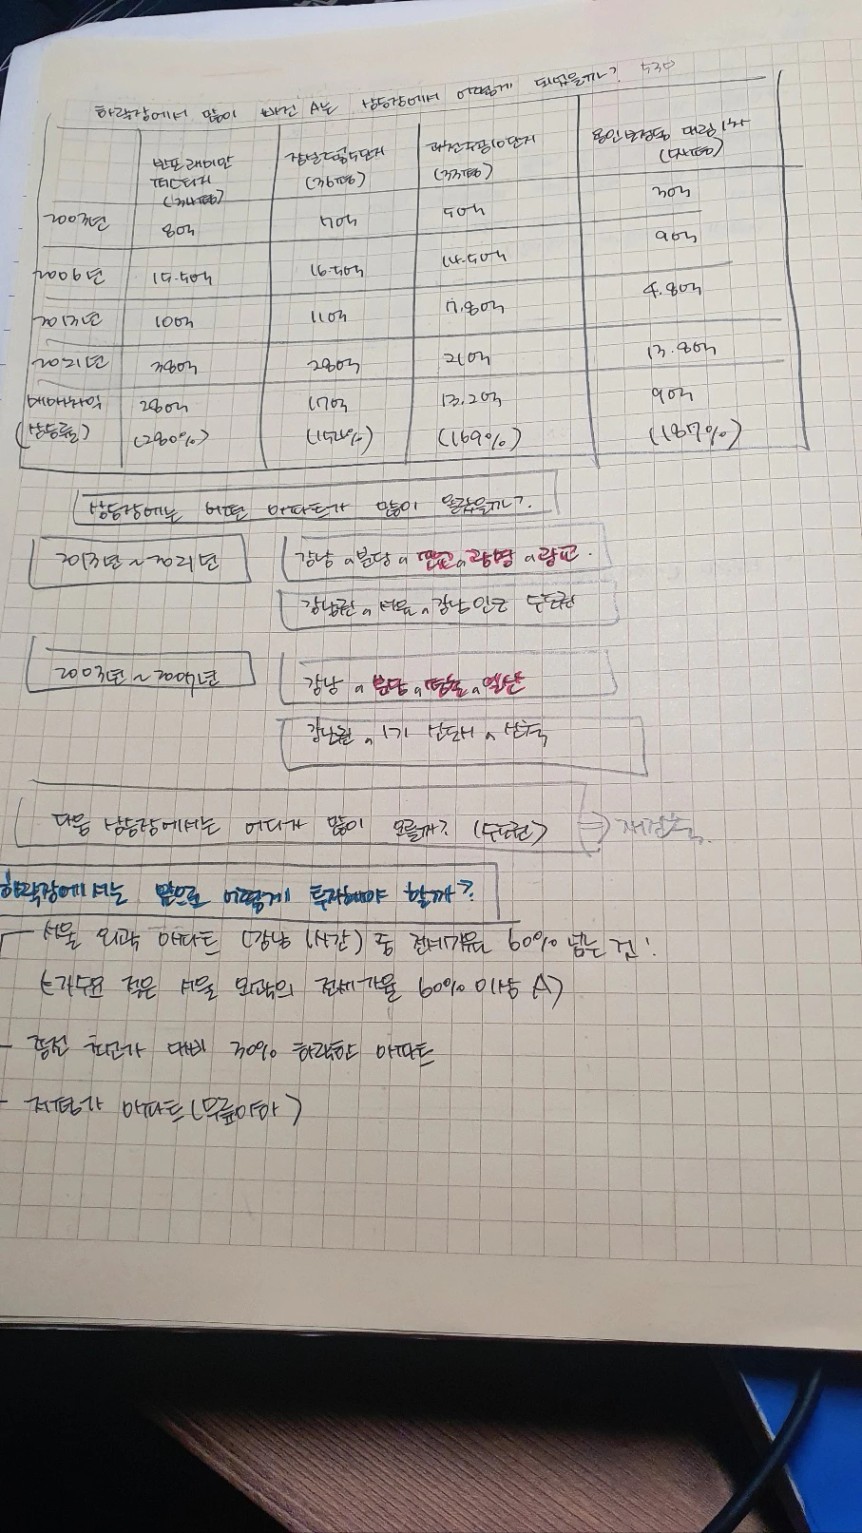 하락장에서 많이 빠진 A는 상승장에서 어떻게 되었을까? 530
반포래미안 퍼스티지 (34평) 강남 5단지 (36평) 과천주공10단지 (33평) 용인 보정동 대림1차 (54평)
8억 7억 5억 3억
2009년 15.5억 16.5억 14.5억 9억
2013년 10억 11억 7.8억 4.8억
2021년 38억 28억 21억 13.8억
매매차익 28억 17억 13.2억 9억
(상승률) (280%) (154%) (169%) (187%)
상승장에는 어떤 아파트가 많이 올랐을까?
2013년~2021년 강남 분당 판교 광명 광교.
강남권 서울 강남 인근 수도권
2003년~2007년 강남 분당 평촌 일산
강남권 1기 신도시 신축
다음 상승장에서는 어디가 많이 오를까? (수도권) ⇒ 재건축
하락장에서는 앞으로 어떻게 투자해야 할까?
서울 외곽 아파트 (강남 1시간) 중 전세가율 60% 넘는 것!
(가수요 적은 서울 외곽의 전세가율 60% 이상 A)
- 종전 최고가 대비 30% 하락한 아파트
- 저평가 아파트